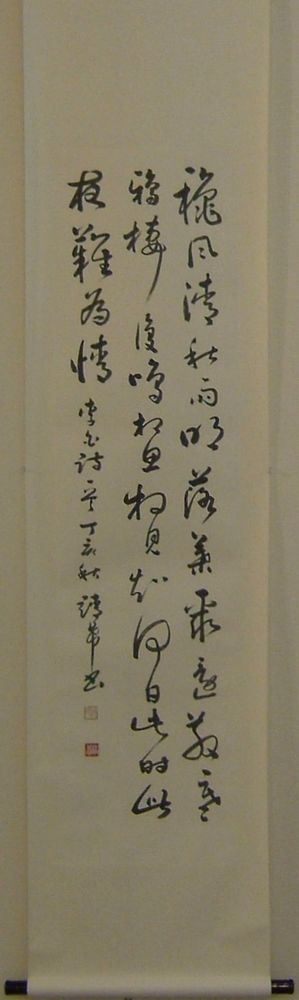 龝風清秋月明落葉聚還散寒
鴉棲復鳴相思相見知何日此時此
夜難為情 李白詩一首 丁亥秋 書